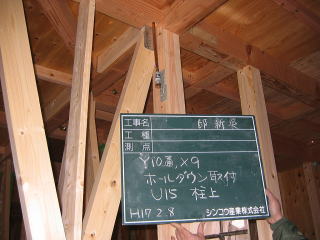 工事名 邸新築
工種
測点
Y10番, X9
ホールダウン取付
U15 柱上
H17 2 8 シンコウ産業株式会社